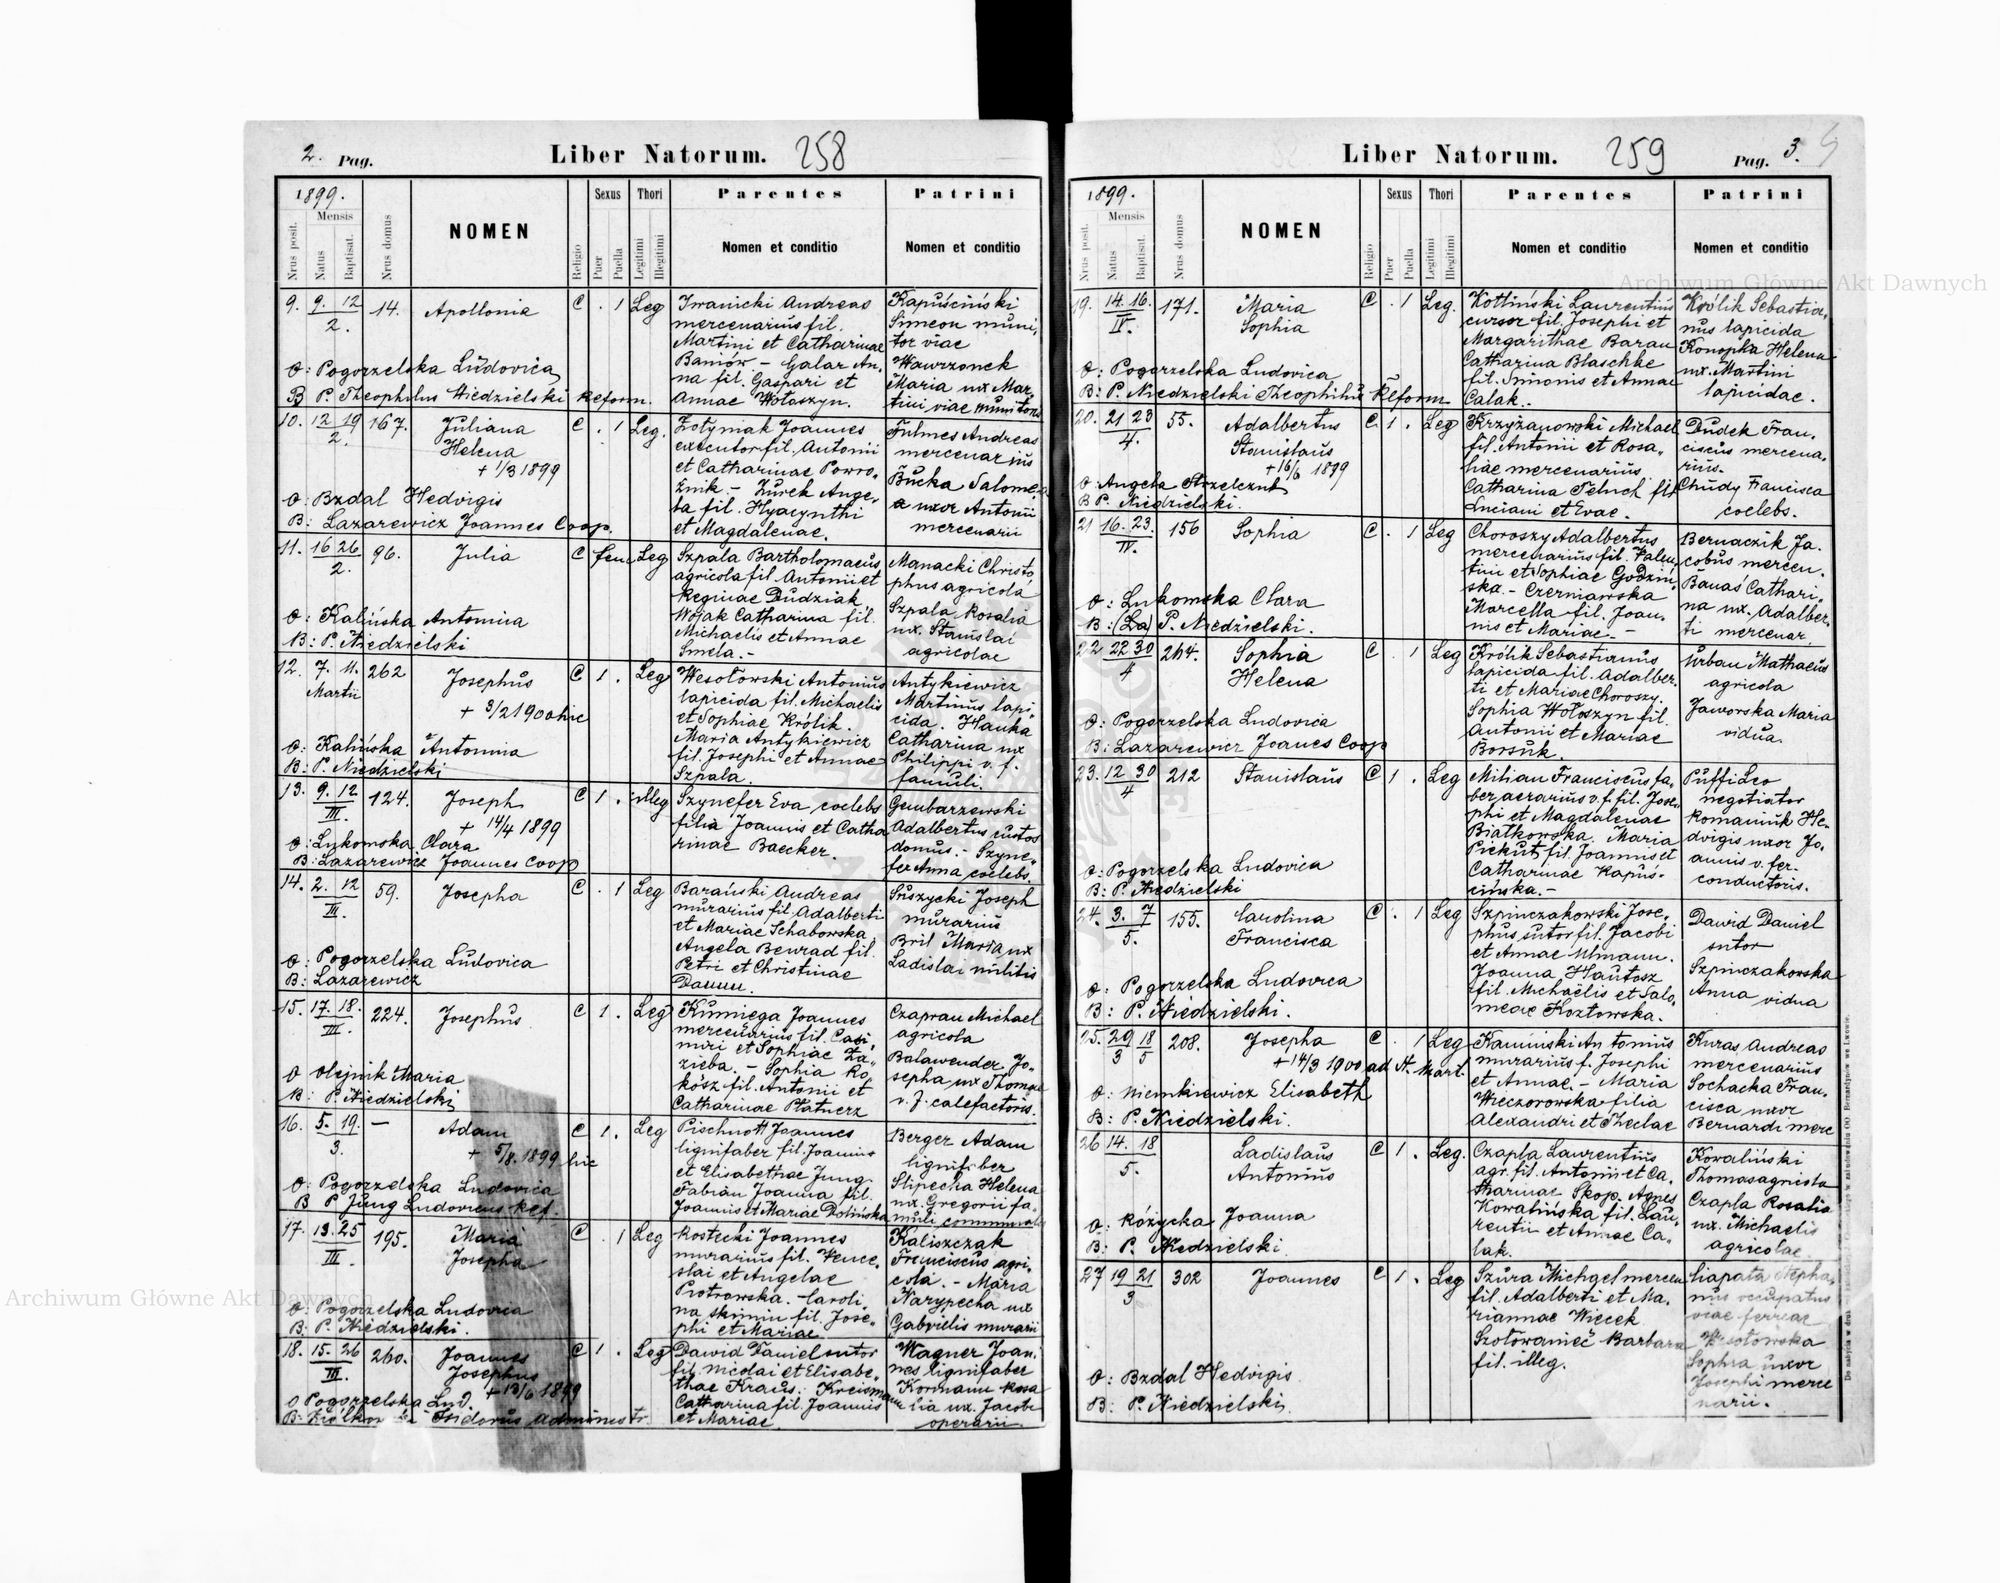 2. Pag. Liber Natorum. 258
1899.
Nrus posit. Mensis Natus Baptisat. Nrus domus NOMEN Religio Sexus Puer Puella Thori Legitimi Illegitimi Parentes Nomen et conditio Patrini Nomen et conditio
9. 9. 12 2. 14. Apollonia C . 1 Leg
Iwanicki Andreas
mercenarius fil.
Martini et Catharinae
Baniów - Galar An-
na fil. Gaspari et
Annae Wołoszyn.
Kapuściński
Simeon muni-
tor viae
Wawrzonek
Maria ux Mar-
tini viae munitoris
O: Pogorzelska Ludovica
B P. Theophilus Niedzielski Reform.
10. 12 19 2. 167. Juliana C . 1 Leg.
Helena
+ 1/3 1899
Zotyniak Joannes
executor fil. Antonii
et Catharinae Powro-
źnik. - Żurek Ange-
la fil. Hyacynthi
et Magdalenae.
Fulmes Andreas
mercenarius
Bučka Salome-
a uxor Antonii
mercenarii
O: Bzdal Hedvigis
B: Lazarewicz Joannes Coop.
11. 16 26 2. 96. Julia C fem Leg
Szpala Bartholomaeus
agricola fil. Antonii et
Reginae Dudziak
Wojak Catharina fil.
Michaelis et Annae
Smela. -
Manacki Christo-
phus agricola
Szpala Rosalia
ux. Stanislai
agricolae
O: Kalińska Antonina
B: P. Niedzielski
12. 7. 11. Martii 262 Josephus C 1 . Leg
+ 3/2 1900 hic
Wesołowski Antonius
lapicida fil. Michaelis
et Sophiae Królik.
Maria Antykiewicz
fil. Josephi et Annae
Szpala.
Antykiewicz
Martinus lapi-
cida. Hauka
Catharina ux
Philippi v. f.
famuli.
O: Kalińska Antonina
B: P. Niedzielski
13. 9. 12 III. 124. Joseph C 1 . illeg
+ 14/4 1899
Szynefer Eva coelebs
filia Joannis et Catha
rinae Baecker.
Gembarzewski
Adalbertus custos
domus. - Szyne-
fer Anna coelebs.
O: Lukomska Clara
B: Lazarewicz Joannes Coop
14. 2. 12 III. 59. Josepha C . 1 Leg
Barański Andreas
murarius fil. Adalberti
et Mariae Schaborska
Angela Benrad fil.
Petri et Christinae
Suszycki Joseph
murarius
Bril Maria ux
Ladislai militis
O: Pogorzelska Ludovica
B: Lazarewicz
15. 17. 18. III. 224. Josephus C 1. Leg
Kumiega Joannes
mercenarius fil. Casi-
miri et Sophiae Za-
zieba. - Sophia Ro-
kosz fil. Antonii et
Catharinae Platnerz
Czapran Michael
agricola
Balawender Jo-
sepha ux Thomae
v. f. calefactoris.
O Olejnik Maria
B: P. Niedzielski
16. 5. 19. 3. — Adam C 1. Leg
+ 5/8. 1899 hic
Pischnott Joannes
lignifaber fil. Joannis
et Elisabethae Jung
Fabian Joanna fil.
Joannis et Mariae Dolińska
Berger Adam
lignifaber
Slipecka Helena
ux. Gregorii fa-
muli
O: Pogorzelska Ludovica
B P Jung Ludovicus Ref.
17. 13. 25 III. 195. Maria C . 1 Leg
Josepha
Rostecki Joannes
murarius fil. Vence-
slai et Angelae
Piotrowska. - Caroli-
na Skimin fil. Jose-
phi et Mariae
Kaliszczak
Franciscus agri-
cola. - Maria
Narypecha ux
Gabrielis murarii
O: Pogorzelska Ludovica
B: P. Niedzielski.
18. 15. 26 III. 260. Joannes C 1. Leg
Josephus
+ 13/6 1899
Dawid Daniel sutor
fil. Nicolai et Elisabe-
thae Kraus. Kreismann
Catharina fil. Joannis
et Mariae.
Wagner Joan-
nes lignifaber
Kormann Rosa
lia ux. Jacobi
operarii
O Pogorzelska Lud.
B: Isidorus administr.
Liber Natorum. 259 Pag. 3.
1899.
Nrus posit. Mensis Natus Baptisat. Nrus domus NOMEN Religio Sexus Puer Puella Thori Legitimi Illegitimi Parentes Nomen et conditio Patrini Nomen et conditio
19. 14. 16. IV. 171. Maria C . 1 Leg.
Sophia
Kotliński Laurentius
cursor fil. Josephi et
Margarithae Baran
Catharina Blaschke
fil. Simonis et Annae
Calak. -
Królik Sebastia-
nus lapicida
Konopka Helena
ux. Martini
lapicidae.
O: Pogorzelska Ludovica
B: P. Niedzielski Theophilus Reform
20. 21 23 4. 55. Adalbertus C 1 . Leg
Stanislaus
+ 16/6 1899
Krzyżanowski Michael
fil. Antonii et Rosa-
liae mercenarius
Catharina Teluch fil
Luciani et Evae.
Dudek Fran-
ciscus mercena-
rius.
Chudy Francisca
coelebs.
O: Angela Strzelczuk
B P. Niedzielski.
21 16. 23. IV. 156 Sophia C . 1 Leg
Choroszy Adalbertus
mercenarius fil. Valen-
tini et Sophiae Godziń
ska. - Czerniawska
Marcella fil. Joan-
nis et Mariae. -
Bernaczik Ja-
cobus mercen.
Banaś Cathari-
na ux. Adalber-
ti mercenar.
O: Lukomska Clara
B: (La) P. Niedzielski.
22 22 30 4 264. Sophia C . 1 Leg
Helena
Królik Sebastianus
lapicida fil. Adalber-
ti et Mariae Choroszy.
Sophia Wołoszyn fil.
Antonii et Mariae
Borsuk.
Urban Mathaeus
agricola
Jaworska Maria
vidua.
O: Pogorzelska Ludovica
B: Lazarewicz Joanes Coop
23. 12 30 4 212 Stanislaus C 1 . Leg
Milian Franciscus fa-
ber aerarius v. f. fil. Jose-
phi et Magdalenae
Białkowska. Maria
Piekut fil. Joannis et
Catharinae Kapuś-
cińska. -
Puffi Leo
negotiator
Romaniuk He-
dvigis uxor Jo-
annis v. fer.
conductoris.
O: Pogorzelska Ludovica
B: P. Niedzielski
24. 3. 7 5. 155. Carolina C . 1 Leg
Francisca
Szpinczakowski Jose-
phus sutor fil. Jacobi
et Annae Ulmann.
Joanna Hautosz
fil. Michaëlis et Salo-
meae Kozłowska.
Dawid Daniel
sutor
Szpinczakowska
Anna vidua
O: Pogorzelska Ludovica
B: P. Niedzielski.
25. 29 18 3 5 208. Josepha C . 1 Leg
+ 14/3 1900 ad St. Mart.
Kamiński Antonius
murarius f. Josephi
et Annae. - Maria
Wieczorowska filia
Alexandri et Theclae
Kuras Andreas
mercenarius
Sochacka Fran-
cisca uxor
Bernardi merc
O: Niemkiewicz Elisabeth
B: P. Niedzielski.
26 14. 18 5. Ladislaus C 1 . Leg.
Antonius
Czapla Laurentius
agr. fil. Antonii et Ca-
tharinae Skop. Agnes
Kowalińska fil. Lau-
rentii et Annae Ca-
lak.
Kowaliński
Thomas agricola
Czapla Rosalia
ux. Michaelis
agricolae
O: Różycka Joanna
B: P. Niedzielski
27 19 21 3 302 Joannes C 1. Leg
Szura Michael mercen
fil. Adalberti et Ma-
riannae Wiecek
Szotowanieć Barbara
fil. illeg.
Liapata Stepha-
nus occupatus
viae ferreae
Wesołowska
Sophia uxor
Josephi merce
narii.
O: Bzdal Hedvigis.
B: P. Niedzielski.
Archiwum Główne Akt Dawnych
Archiwum Główne Akt Dawnych